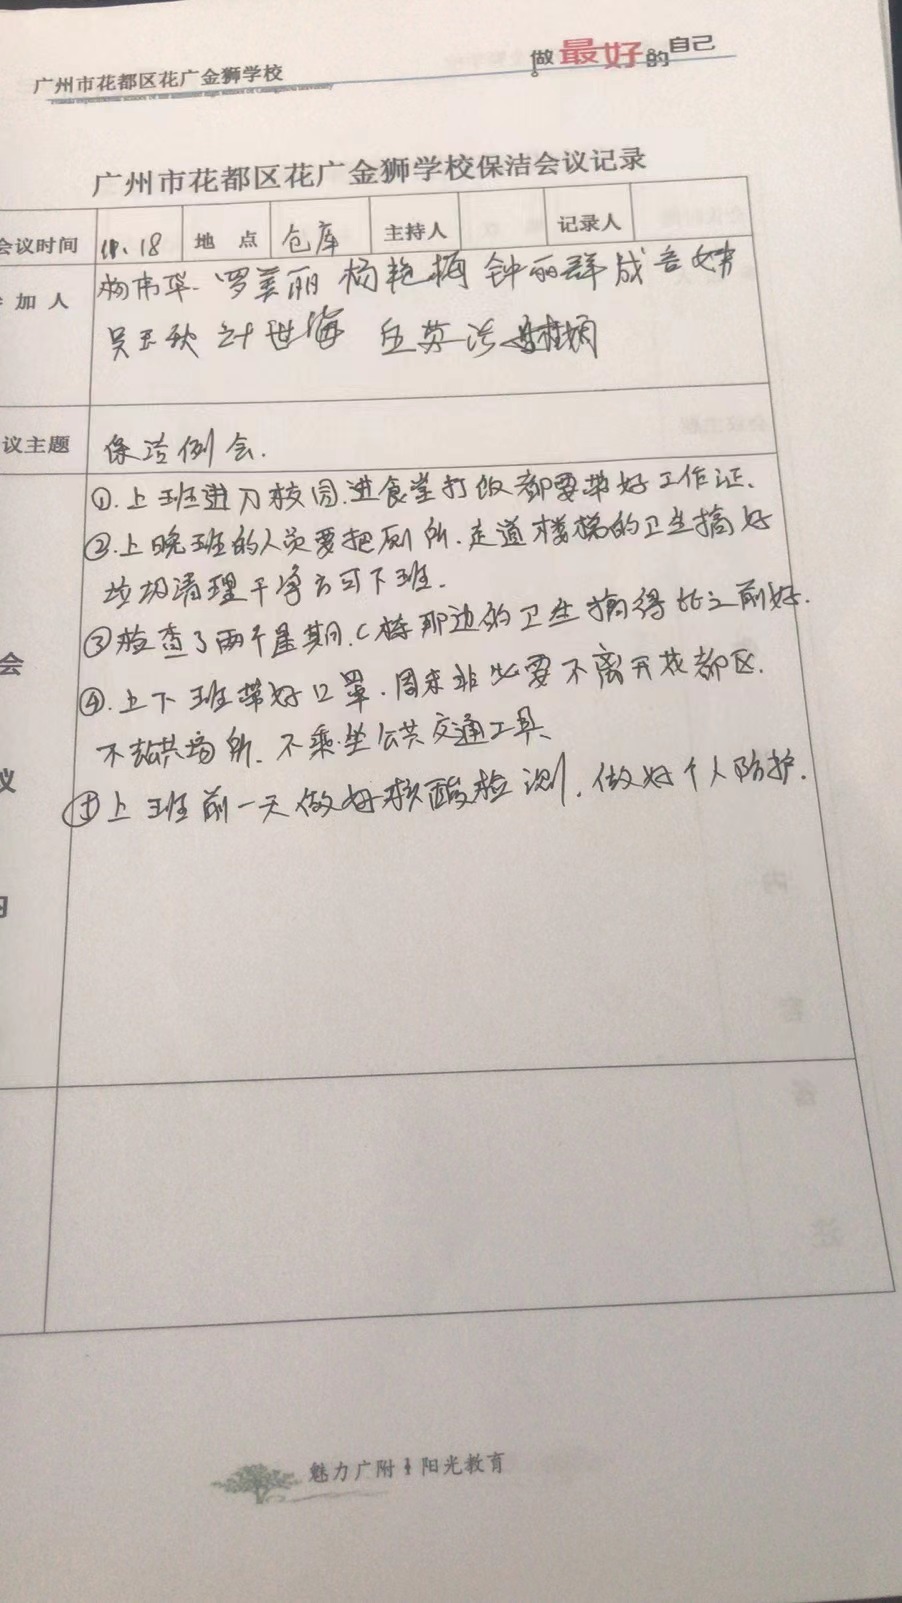 广州市花都区花广金狮学校
做最好的自己
广州市花都区花广金狮学校保洁会议记录
会议时间 18 地 点 仓库 主持人 记录人
加 人 杨伟华 罗美丽 杨艳梅 钟丽群 成
吴玉秋 叶世海 丘英
议主题 保洁例会.
①.上班进入校园.进食堂打饭都要带好工作证.
②.上晚班的人员要把厕所.走道楼梯的卫生搞好
垃圾清理干净方可下班.
会 ③检查了两个星期.C栋那边的卫生搞得比之前好.
④.上下班带好口罩.周末非必要不离开花都区.
议 不去公共场所.不乘坐公共交通工具、
⑤上班前一天做好核酸检测.做好个人防护.
魅力广附 阳光教育